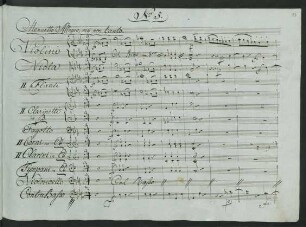 No. 5.
Menuetto Allegro ma non tanto
Violino
Viola
II Flauti
II Clarinetti
Fagotti
II Corni in
II Clarini in
Tympani in
Violoncello
Col Basso
Contra Basso